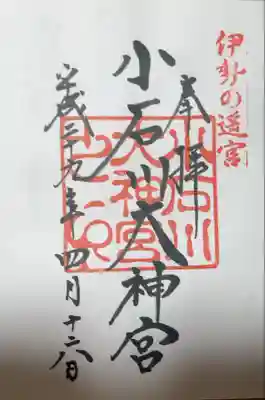 伊勢の遥宮
奉拝
小石川大神宮
平成二十九年四月十六日
小石川
大神宮
之印